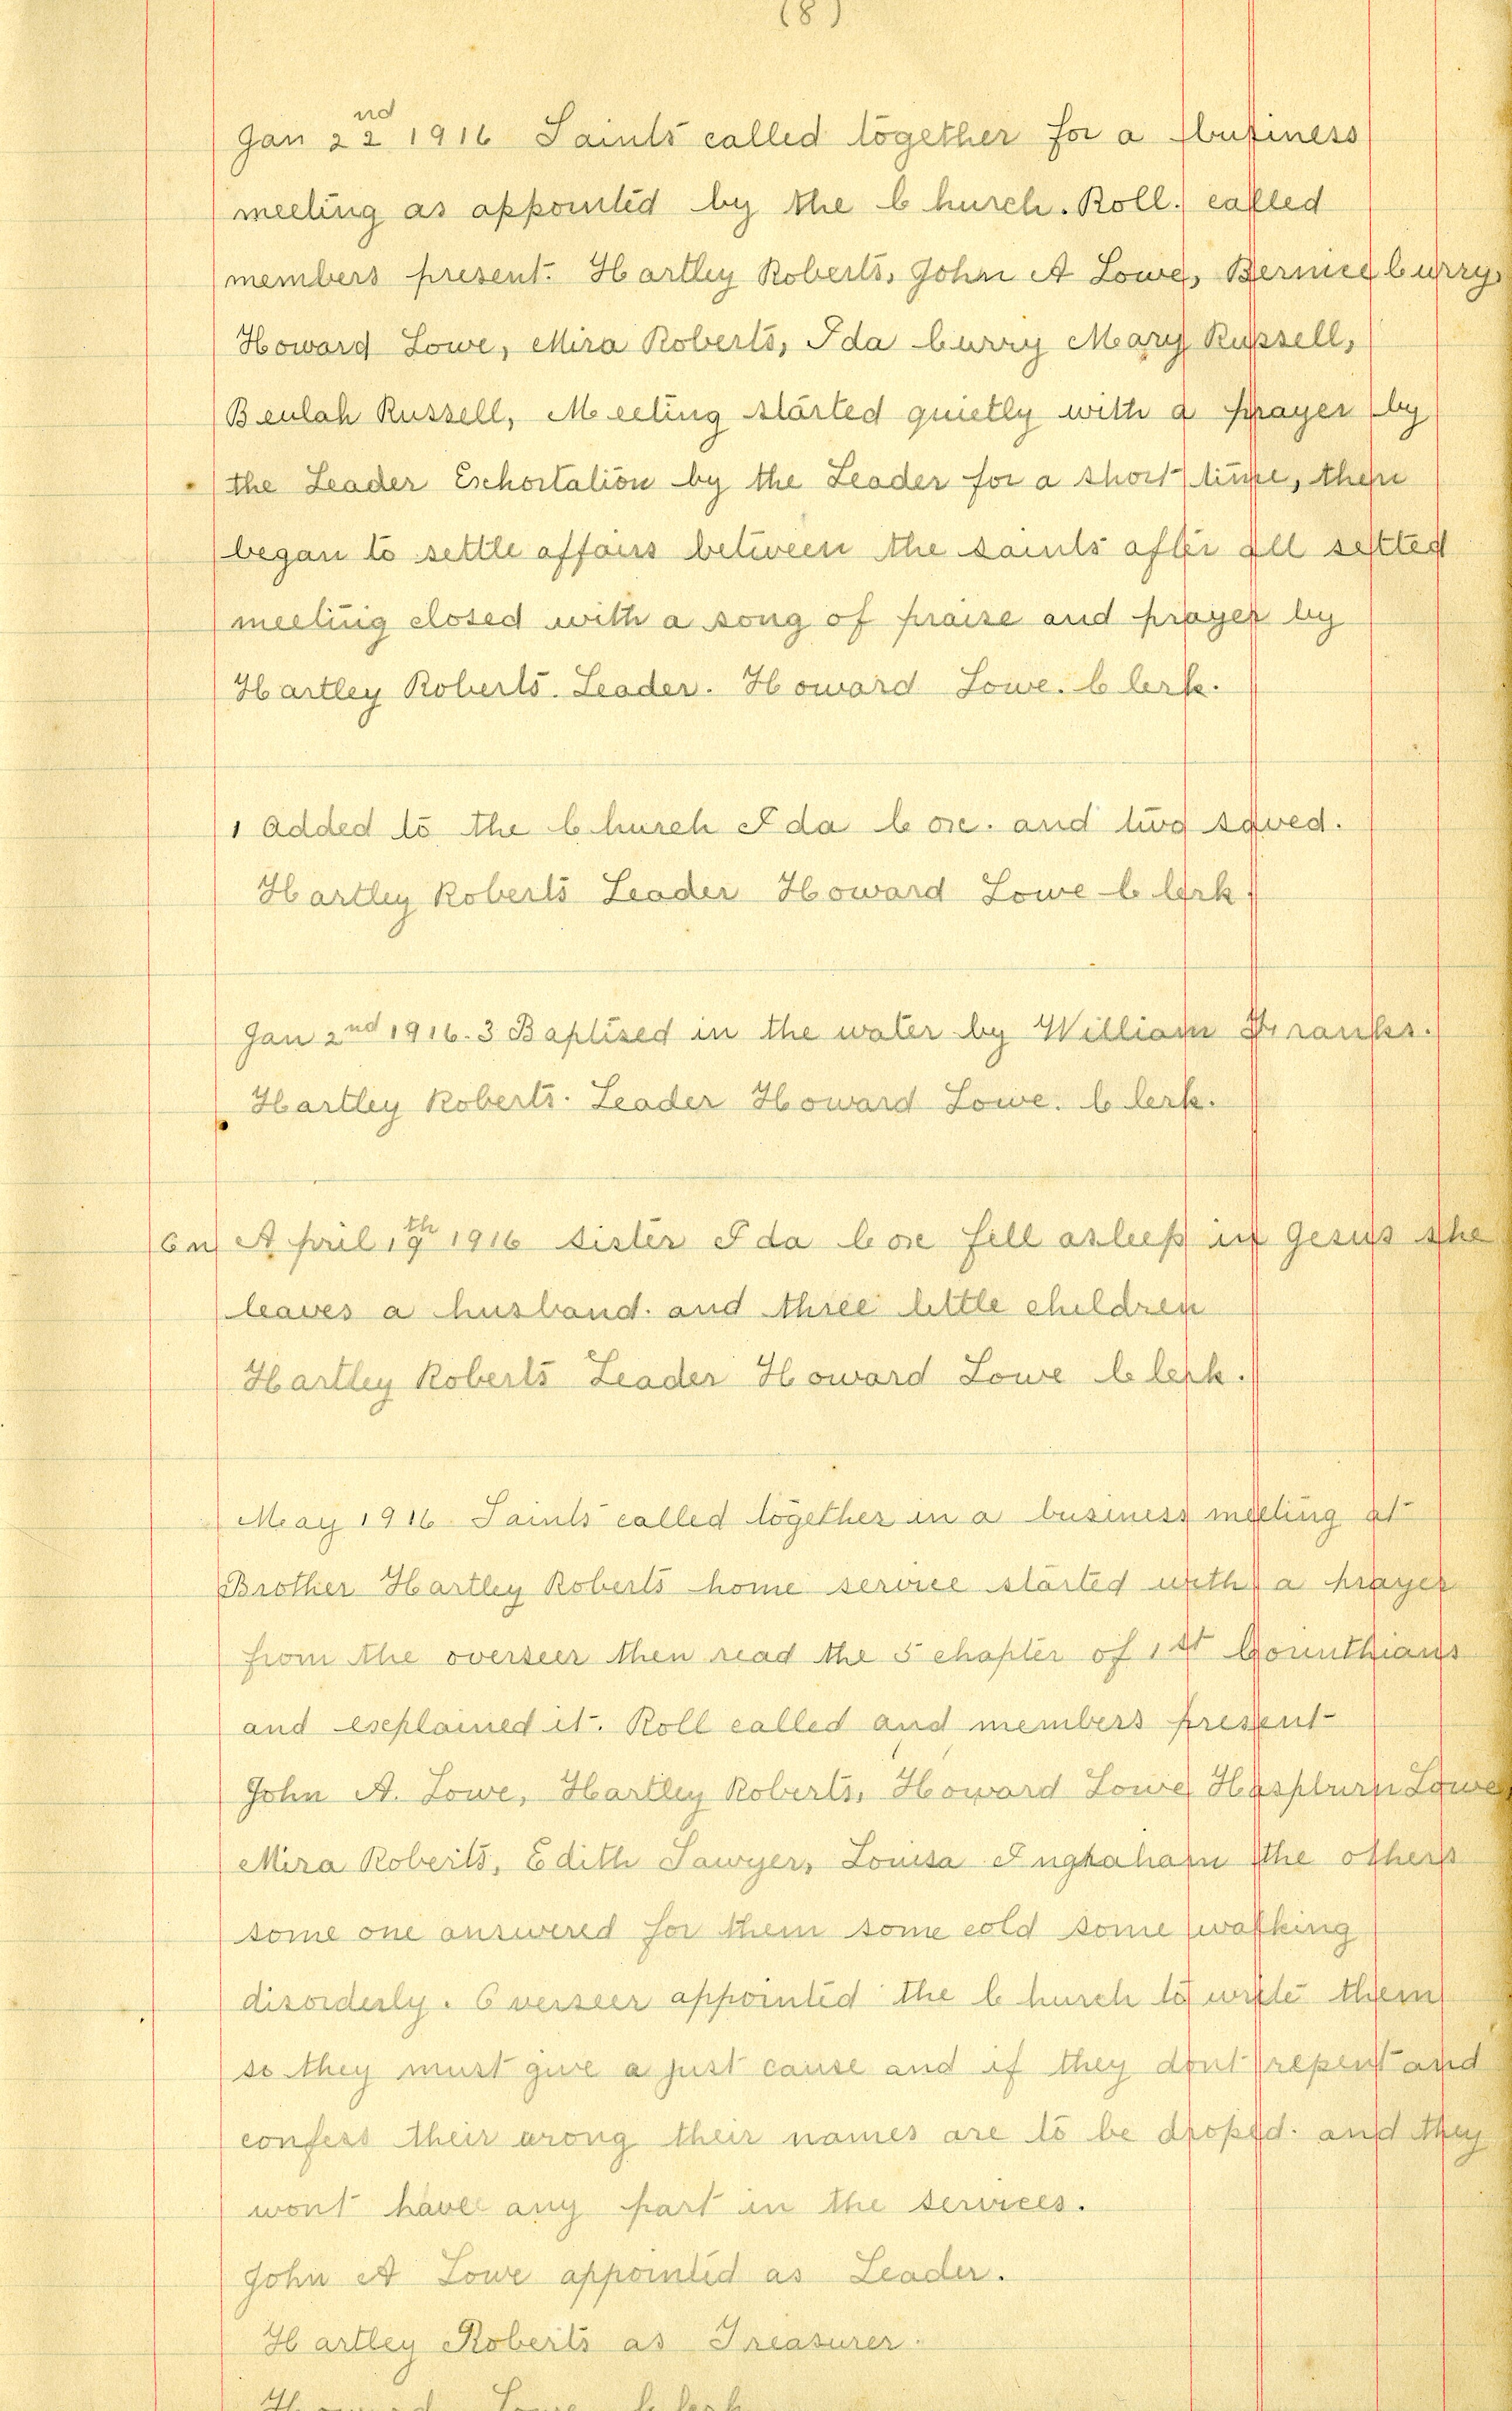 (8)
Jan 22nd 1916 Saints called together for a business
meeting as appointed by the Church. Roll. called
members present. Hartley Roberts, John A Lowe, Bernice Curry,
Howard Lowe, Mira Roberts, Ida Curry Mary Russell,
Beulah Russell, Meeting started quietly with a prayer by
the Leader Exhortation by the Leader for a short time, then
began to settle affairs between the saints after all settled
meeting closed with a song of praise and prayer by
Hartley Roberts. Leader. Howard Lowe. Clerk.
1 added to the Church Ida Cox. and two saved.
Hartley Roberts Leader Howard Lowe Clerk.
Jan 2nd 1916. 3 Baptised in the water by William Franks.
Hartley Roberts. Leader Howard Lowe. Clerk.
On April 19th 1916 sister Ida Cox fell asleep in Jesus she
leaves a husband. and three little children
Hartley Roberts Leader Howard Lowe Clerk.
May 1916 Saints called together in a business meeting at
Brother Hartley Roberts home service started with a prayer
from the overseer then read the 5 chapter of 1st Corinthians
and explained it. Roll called and members present
John A. Lowe, Hartley Roberts, Howard Lowe, Haspburn Lowe,
Mira Roberts, Edith Sawyer, Louisa Ingraham the others
some one answered for them some cold some walking
disorderly. Overseer appointed the Church to write them
so they must give a just cause and if they dont repent and
confess their wrong their names are to be droped. and they
wont have any part in the services.
John A Lowe appointed as Leader.
Hartley Roberts as Treasurer.
Howard Lowe Clerk